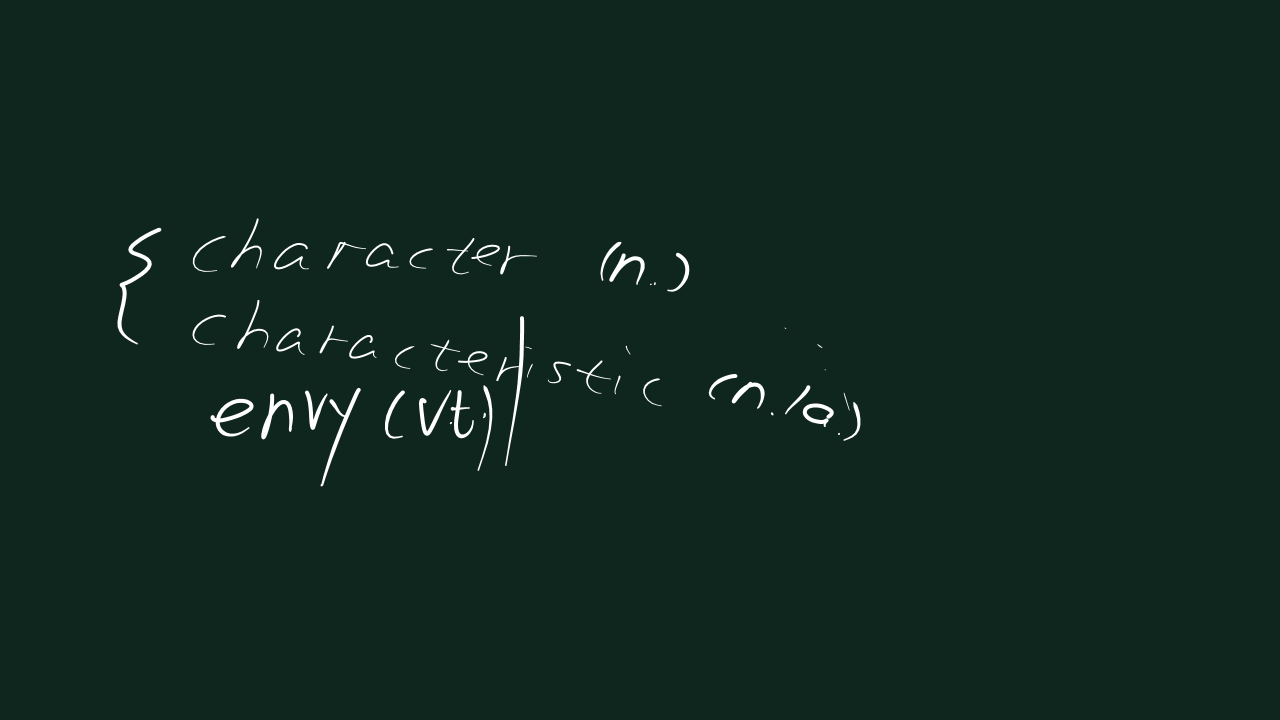 character (n.)
characteristic (n./a.)
envy (vt.)